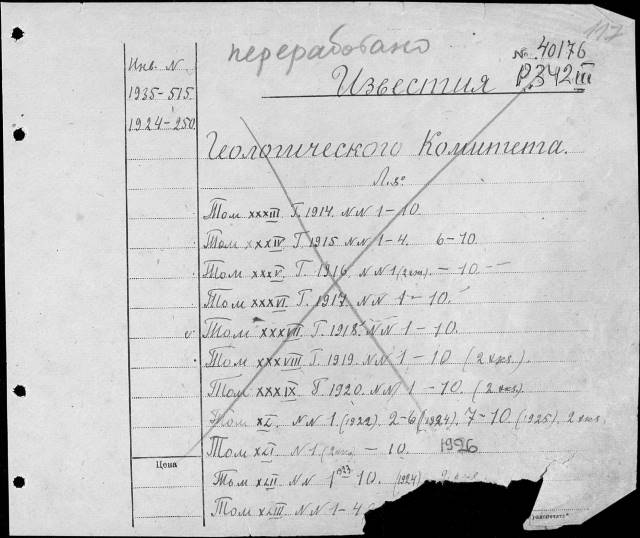 117
переработано
№ 40176
Р.342 III
Инв. N
1935-515.
1924-250.
Известия
Геологического Комитета.
Л. 8°
Том XXXIII. Г. 1914. NN 1-10.
Том XXXIV. Г. 1915. NN 1-4. 6-10.
Том XXXV. Г. 1916. NN 1 (2 экз.) - 10. -
Том XXXVI. Г. 1917. NN 1-10.
Том XXXVII. Г. 1918. NN 1-10.
Том XXXVIII. Г. 1919. NN 1-10 (2 экз.).
Том XXXIX. Г. 1920. NN 1-10. (2 экз.)
Том XL. NN 1. (1922). 2-6 (1924). 7-10 (1925). 2 экз.
Том XLI. N 1 (2 экз.) - 10. 1926
Том XLII. NN 1 1923 - 10. (1924)
Том XLIII. NN 1-4
Цена